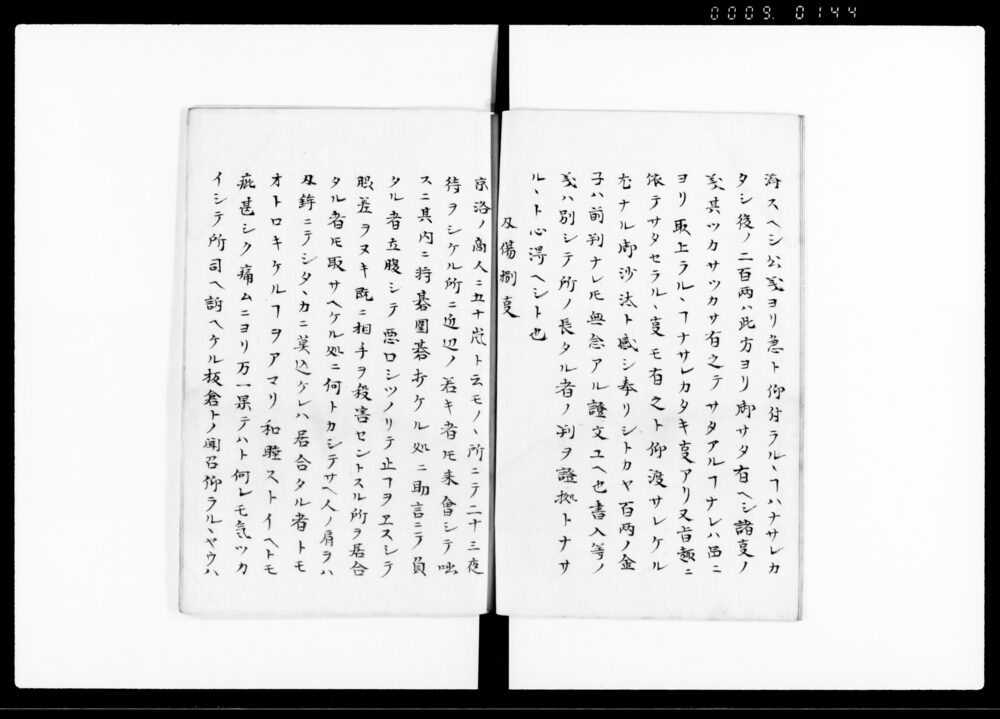 0009 0144
済スヘシ公義ヨリ急ト仰付ラルヽヿハナサレカ
タシ後ノ二百両ハ此方ヨリ御サタ有ヘシ諸事ノ
義其ツカサツカサ有之テサタアルヿナレハ邑ニ
ヨリ取上ラルヽヿナサレカタキ事アリ又旨趣ニ
依テサタセラルヽ事モ有之ト仰渡サレケル
尤ナル御沙汰ト感シ奉リシトカヤ百両ノ金
子ハ前判ナレ𪜈無念アル證文ユヘ也書入等ノ
義ハ別シテ所ノ長タル者ノ判ヲ證拠トナサ
ルヽト心得ヘシト也
刄傷捌事
京洛ノ商人ニ五十嵐ト云モノヽ所ニテ二十三夜
待ヲシケル所ニ近辺ノ若キ者𪜈来會シテ咄
スニ其内ニ将碁圍碁打ケル処ニ助言ニテ負
タル者立腹シテ悪口シツノリテ止ヿヲヱスシテ
脇差ヲヌキ既ニ相手ヲ殺害セントスル所ヲ居合
タル者𪜈取サヘケル処ニ何トカシテサヘ人ノ肩ヲハ
刄鉾ニテシタヽカニ莫込ケレハ居合タル者トモ
オトロキケルヿヲアマリ和睦ストイヘトモ
疵甚シク痛ムニヨリ万一果テハト何レモ気ツカ
イシテ所司ヘ訴ヘケル板倉トノ聞召仰ラルヽヤウハ